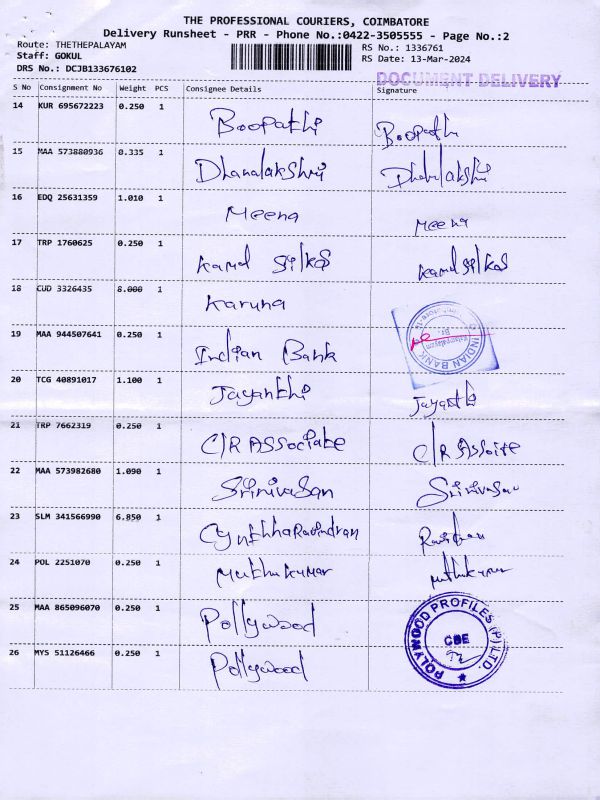 THE PROFESSIONAL COURIERS, COIMBATORE
Delivery Runsheet - PRR - Phone No.:0422-3505555 - Page No.:2
Route: THETHEPALAYAM
Staff: GOKUL
DRS No.: DCJB133676102
RS No.: 1336761
RS Date: 13-Mar-2024
DOCUMENT DELIVERY
S No Consignment No Weight PCS Consignee Details Signature
14 KUR 695672223 0.250 1 Boopathi Boopathi
15 MAA 573880936 0.335 1 Dhanalakshmi
16 EDQ 25631359 1.010 1 Meena Meena
17 TRP 1760625 0.250 1 Kamal Silks Kamal Silks
18 CUD 3326435 8.000 1 Karuna
19 MAA 944507641 0.250 1 Indian Bank INDIAN BANK
20 TCG 40891017 1.100 1 Jayanthi Jayanthi
21 TRP 7662319 0.250 1 C/R Associate C/R
22 MAA 573982680 1.090 1 Srinivasan Srinivasan
23 SLM 341566990 6.850 1
24 POL 2251070 0.250 1 Muthukumar Muthukumar
25 MAA 865096070 0.250 1 Pollywood POLYWOOD PROFILES (P) LTD. CBE
26 MYS 51126466 0.250 1 Pollywood